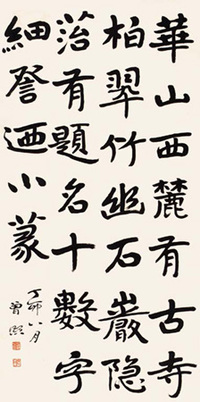 華山西麓有古寺
柏翠竹幽石巖隐
菭有題名十數字
細詧迺小篆
丁卯八月
曾熙